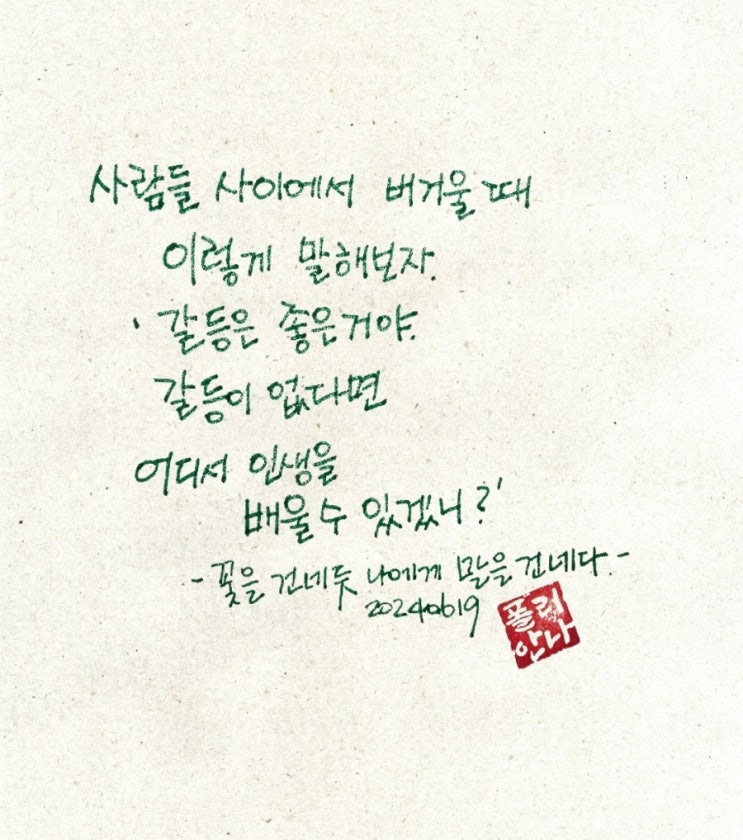 사람들 사이에서 버거울 때
이렇게 말해보자.
'갈등은 좋은거야.
갈등이 없다면
어디서 인생을
배울 수 있겠니?'
- 꽃을 건네듯 나에게 말을 건네다. -
20240619
폴리
안나